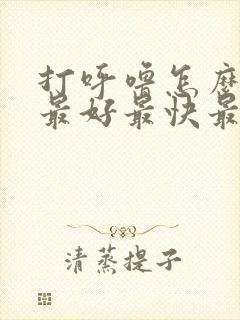 打呼噜怎麽
最好最快最
清蒸提子